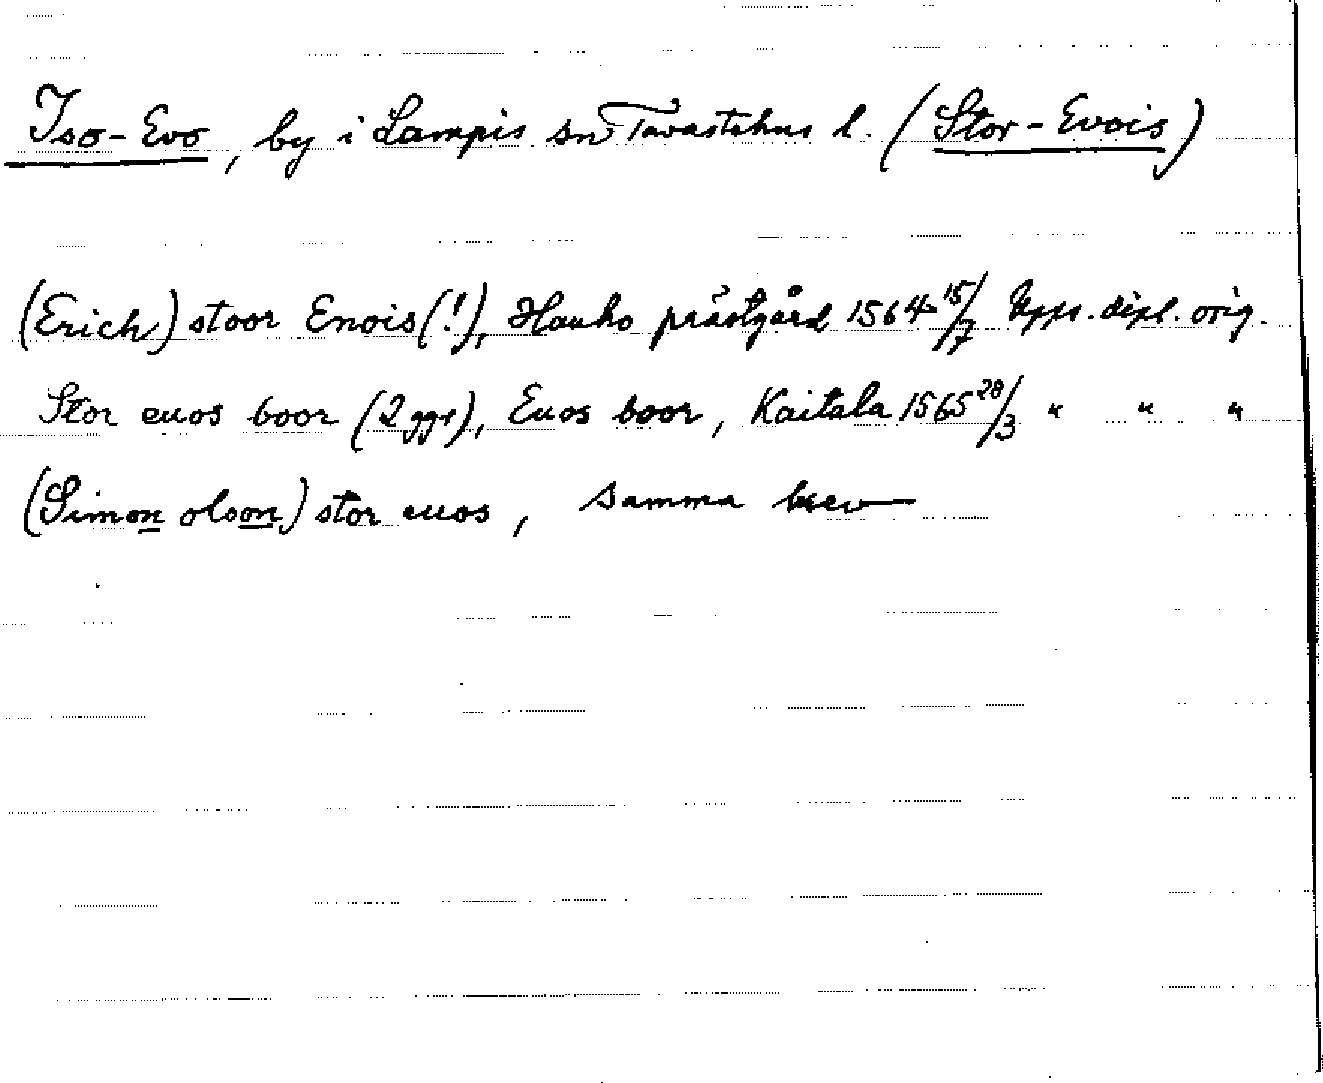 Iso-Evo, by i Lampis sn Tavastehus l. (Stor-Evois)
(Erich) stoor Enois(!), Hauho prästgård 1564 15/7 Upps. dipl. orig.
Stor euos boor (2 ggr), Euos boor, Kaitala 1565 28/3 " " "
(Simon olson) stor euos, samma brev